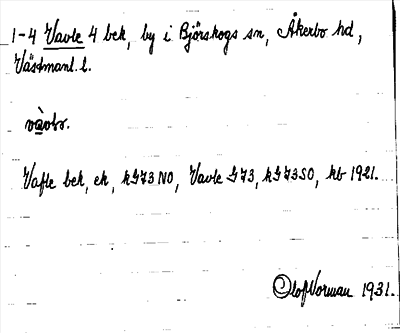 1-4 Vavle 4 bek, by i Björskogs sn, Åkerbo hd,
Västmanl. l.
Vafle bek, ek, kG73NO, Vavle G73, kG73SO, kb 1921.
Olof Vorman 1931.